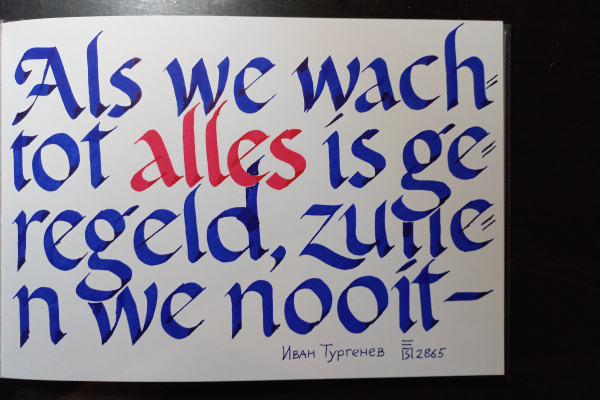 Als we wach=
tot alles is ge=
regeld, zulle=
n we nooit—
Иван Тургенев 2865